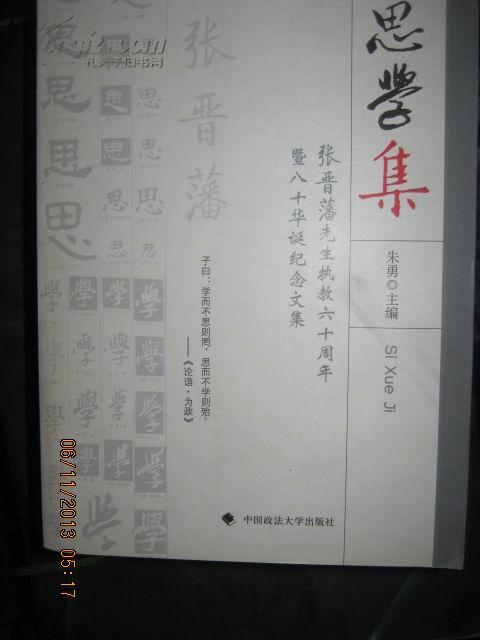 思學集
朱勇◎主编
Si Xue Ji
张晋藩先生执教六十周年
暨八十华诞纪念文集
张晋藩
子曰：学而不思则罔，思而不学则殆。
——《论语·为政》
中国政法大学出版社
思 思
思 思 思
思 思 思
思 思 思
學 學 學 學
學 學 學 學
學 學 學 學
學 學 學
學 學
孔夫子旧书网
06/11/2013 05:17